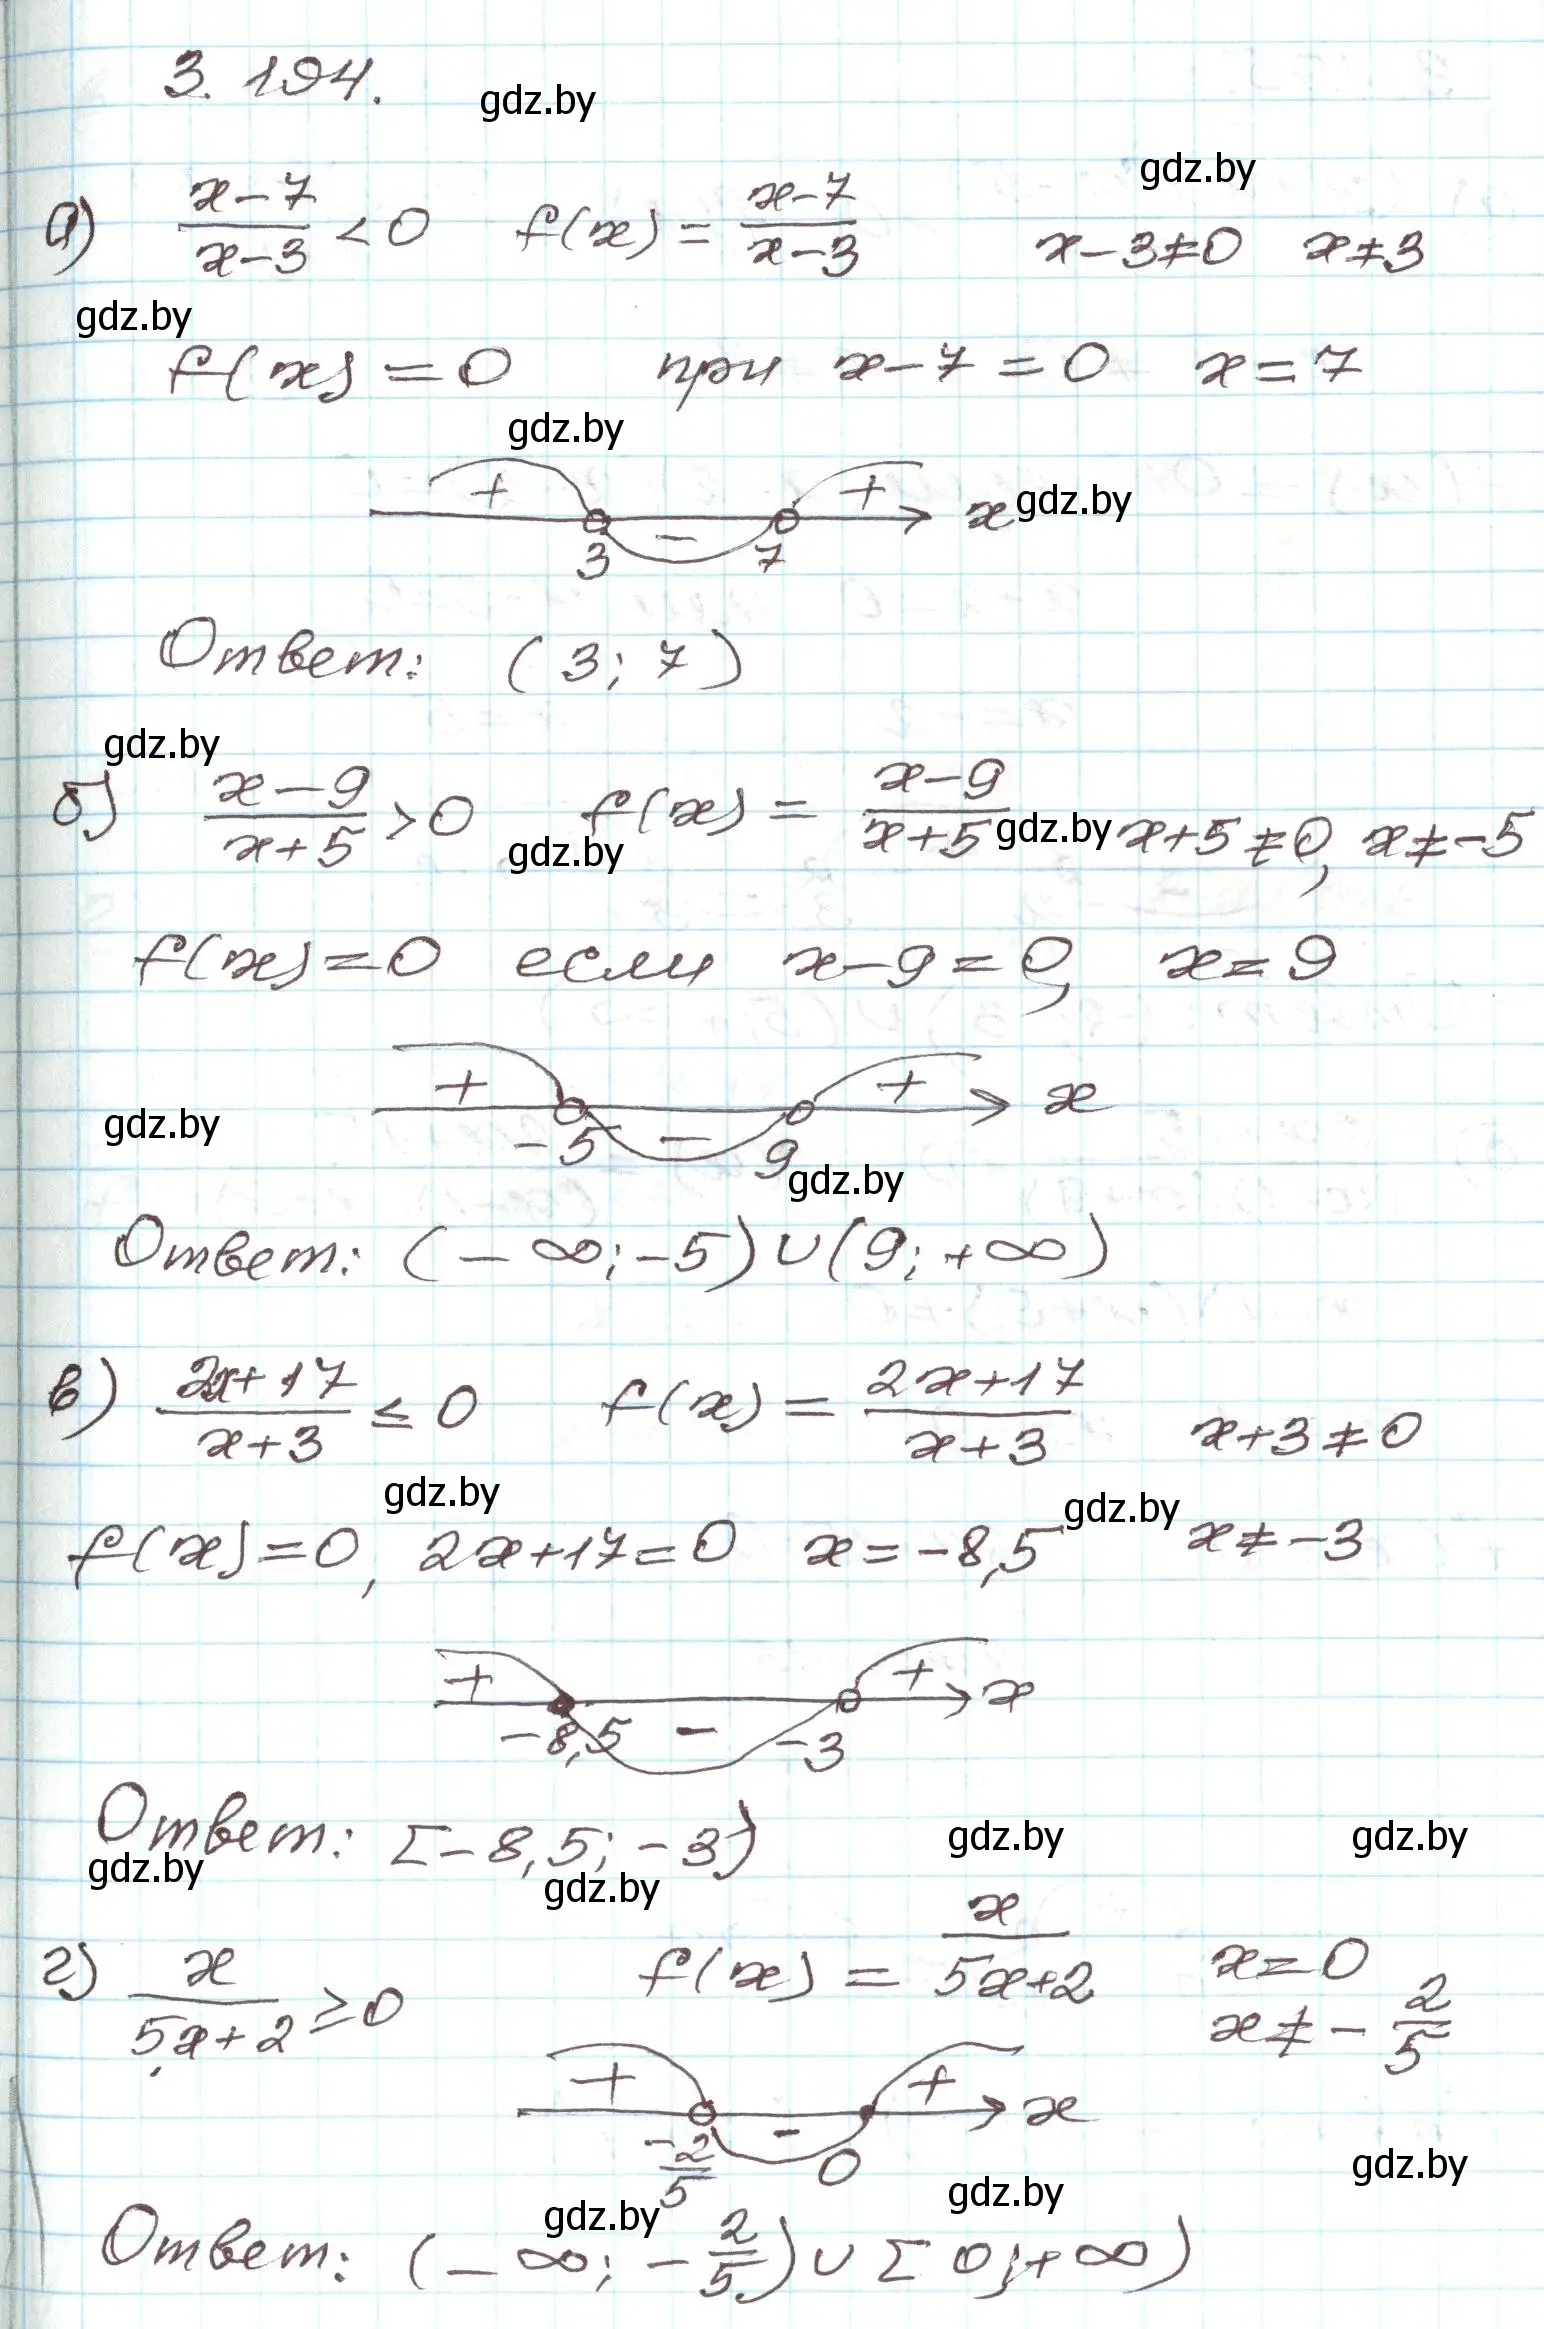 3.194.
gdz.by
gdz.by
а) (x-7)/(x-3) < 0   f(x) = (x-7)/(x-3)   x-3≠0   x≠3
gdz.by
f(x) = 0   при   x-7=0   x=7
gdz.by
+   +   x   gdz.by
3   -   7
Ответ: (3; 7)
gdz.by
б) (x-9)/(x+5) > 0   f(x) = (x-9)/(x+5)   gdz.by   x+5≠0, x≠-5
gdz.by
f(x)=0   если   x-9=0,   x=9
+   +   x
gdz.by   -5   -   9
gdz.by
Ответ: (-∞; -5)∪(9; +∞)
в) (2x+17)/(x+3) ≤ 0   f(x) = (2x+17)/(x+3)   x+3≠0
gdz.by   gdz.by
f(x)=0, 2x+17=0   x=-8,5   x≠-3
+   +   x
-8,5   -   -3
Ответ: [-8,5; -3)   gdz.by   gdz.by
gdz.by   gdz.by
г) x/(5x+2) ≥ 0   f(x) = x/(5x+2)   x=0
x≠-2/5
+   +   x
-2/5   -   0   gdz.by
gdz.by   gdz.by
Ответ: (-∞; -2/5)∪[0; +∞)